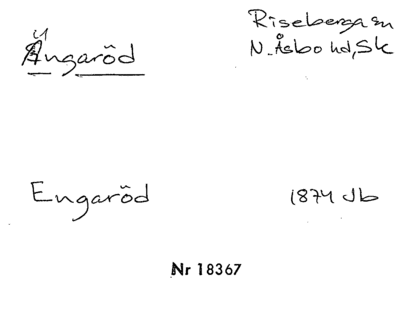 Ängaröd
Riseberga sn
N. Åsbo hd, Sk
Engaröd
1874 Jb
Nr 18367